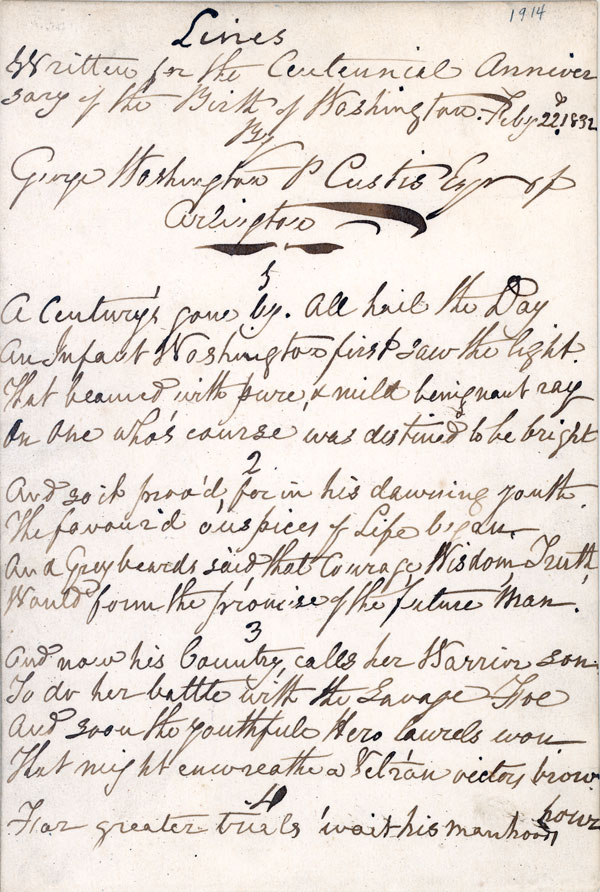 1914
Lines
Written for the Centennial Anniver
sary of the Birth of Washington. Feby 22d 1832
By
George Washington P Custis Esqr of
Arlington
1
A Century's gone by. All hail the Day
An Infant Washington first saw the light.
That beamed with pure, & mild benignant ray
On One who's course was distined to be bright
2
And so it prov'd for in his dawning youth
The favour'd auspices of Life began.
And Greybeards said, that Courage, Wisdom, Truth,
Would form the promise of the future Man.
3
And now his Country, calls her Warrior son
To do her battle with the Savage Foe
And soon the youthfull Hero laurels won
That might enwreathe a Vet'ran victors brow
4
Far greater trials 'wait his manhoods hour